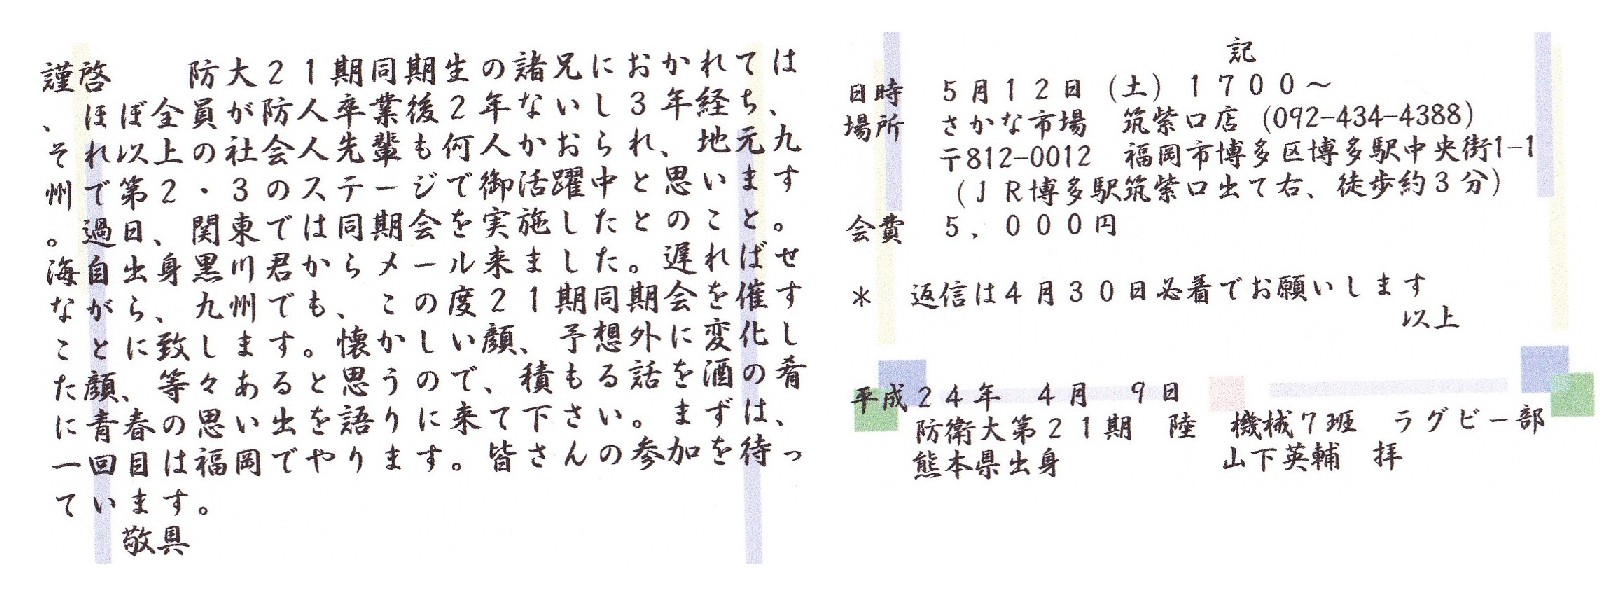 謹啓　　防大２１期同期生の諸兄におかれては
、ほぼ全員が防人卒業後２年ないし３年経ち、
それ以上の社会人先輩も何人かおられ、地元九
州で第２・３のステージで御活躍中と思います
。過日、関東では同期会を実施したとのこと。
海自出身黒川君からメール来ました。遅ればせ
ながら、九州でも、この度２１期同期会を催す
ことに致します。懐かしい顔、予想外に変化し
た顔、等々あると思うので、積もる話を酒の肴
に青春の思い出を語りに来て下さい。まずは、
一回目は福岡でやります。皆さんの参加を待っ
ています。
敬具
記
日時　５月１２日（土）１７００～
場所　さかな市場　筑紫口店（092-434-4388）
〒812-0012　福岡市博多区博多駅中央街1-1
（ＪＲ博多駅筑紫口出て右、徒歩約３分）
会費　５，０００円
＊　返信は４月３０日必着でお願いします
以上
平成２４年　４月　９日
防衛大第２１期　陸　機械７班　ラグビー部
熊本県出身　　　　　山下英輔　拝